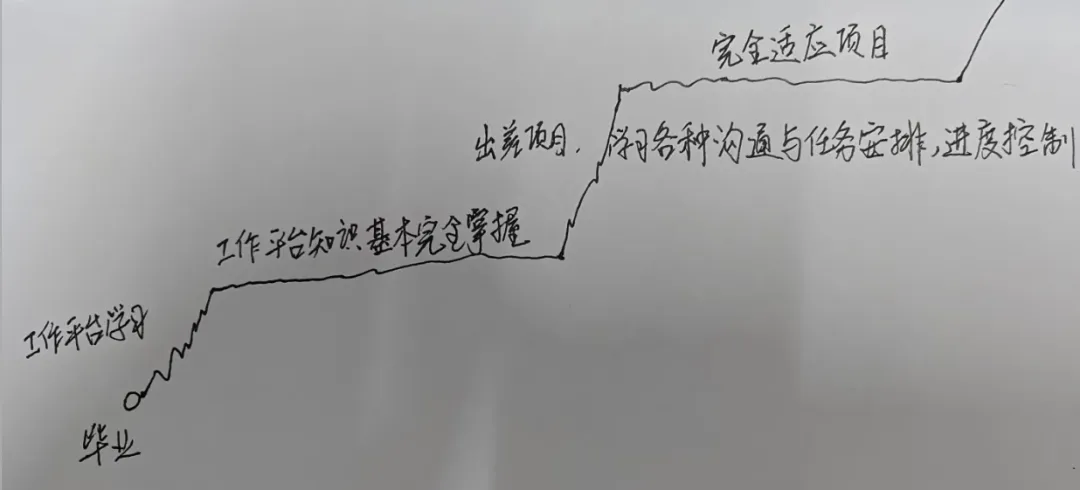 完全适应项目
出差项目，学习各种沟通与任务安排，进度控制
工作平台知识基本完全掌握
工作平台学习
毕业